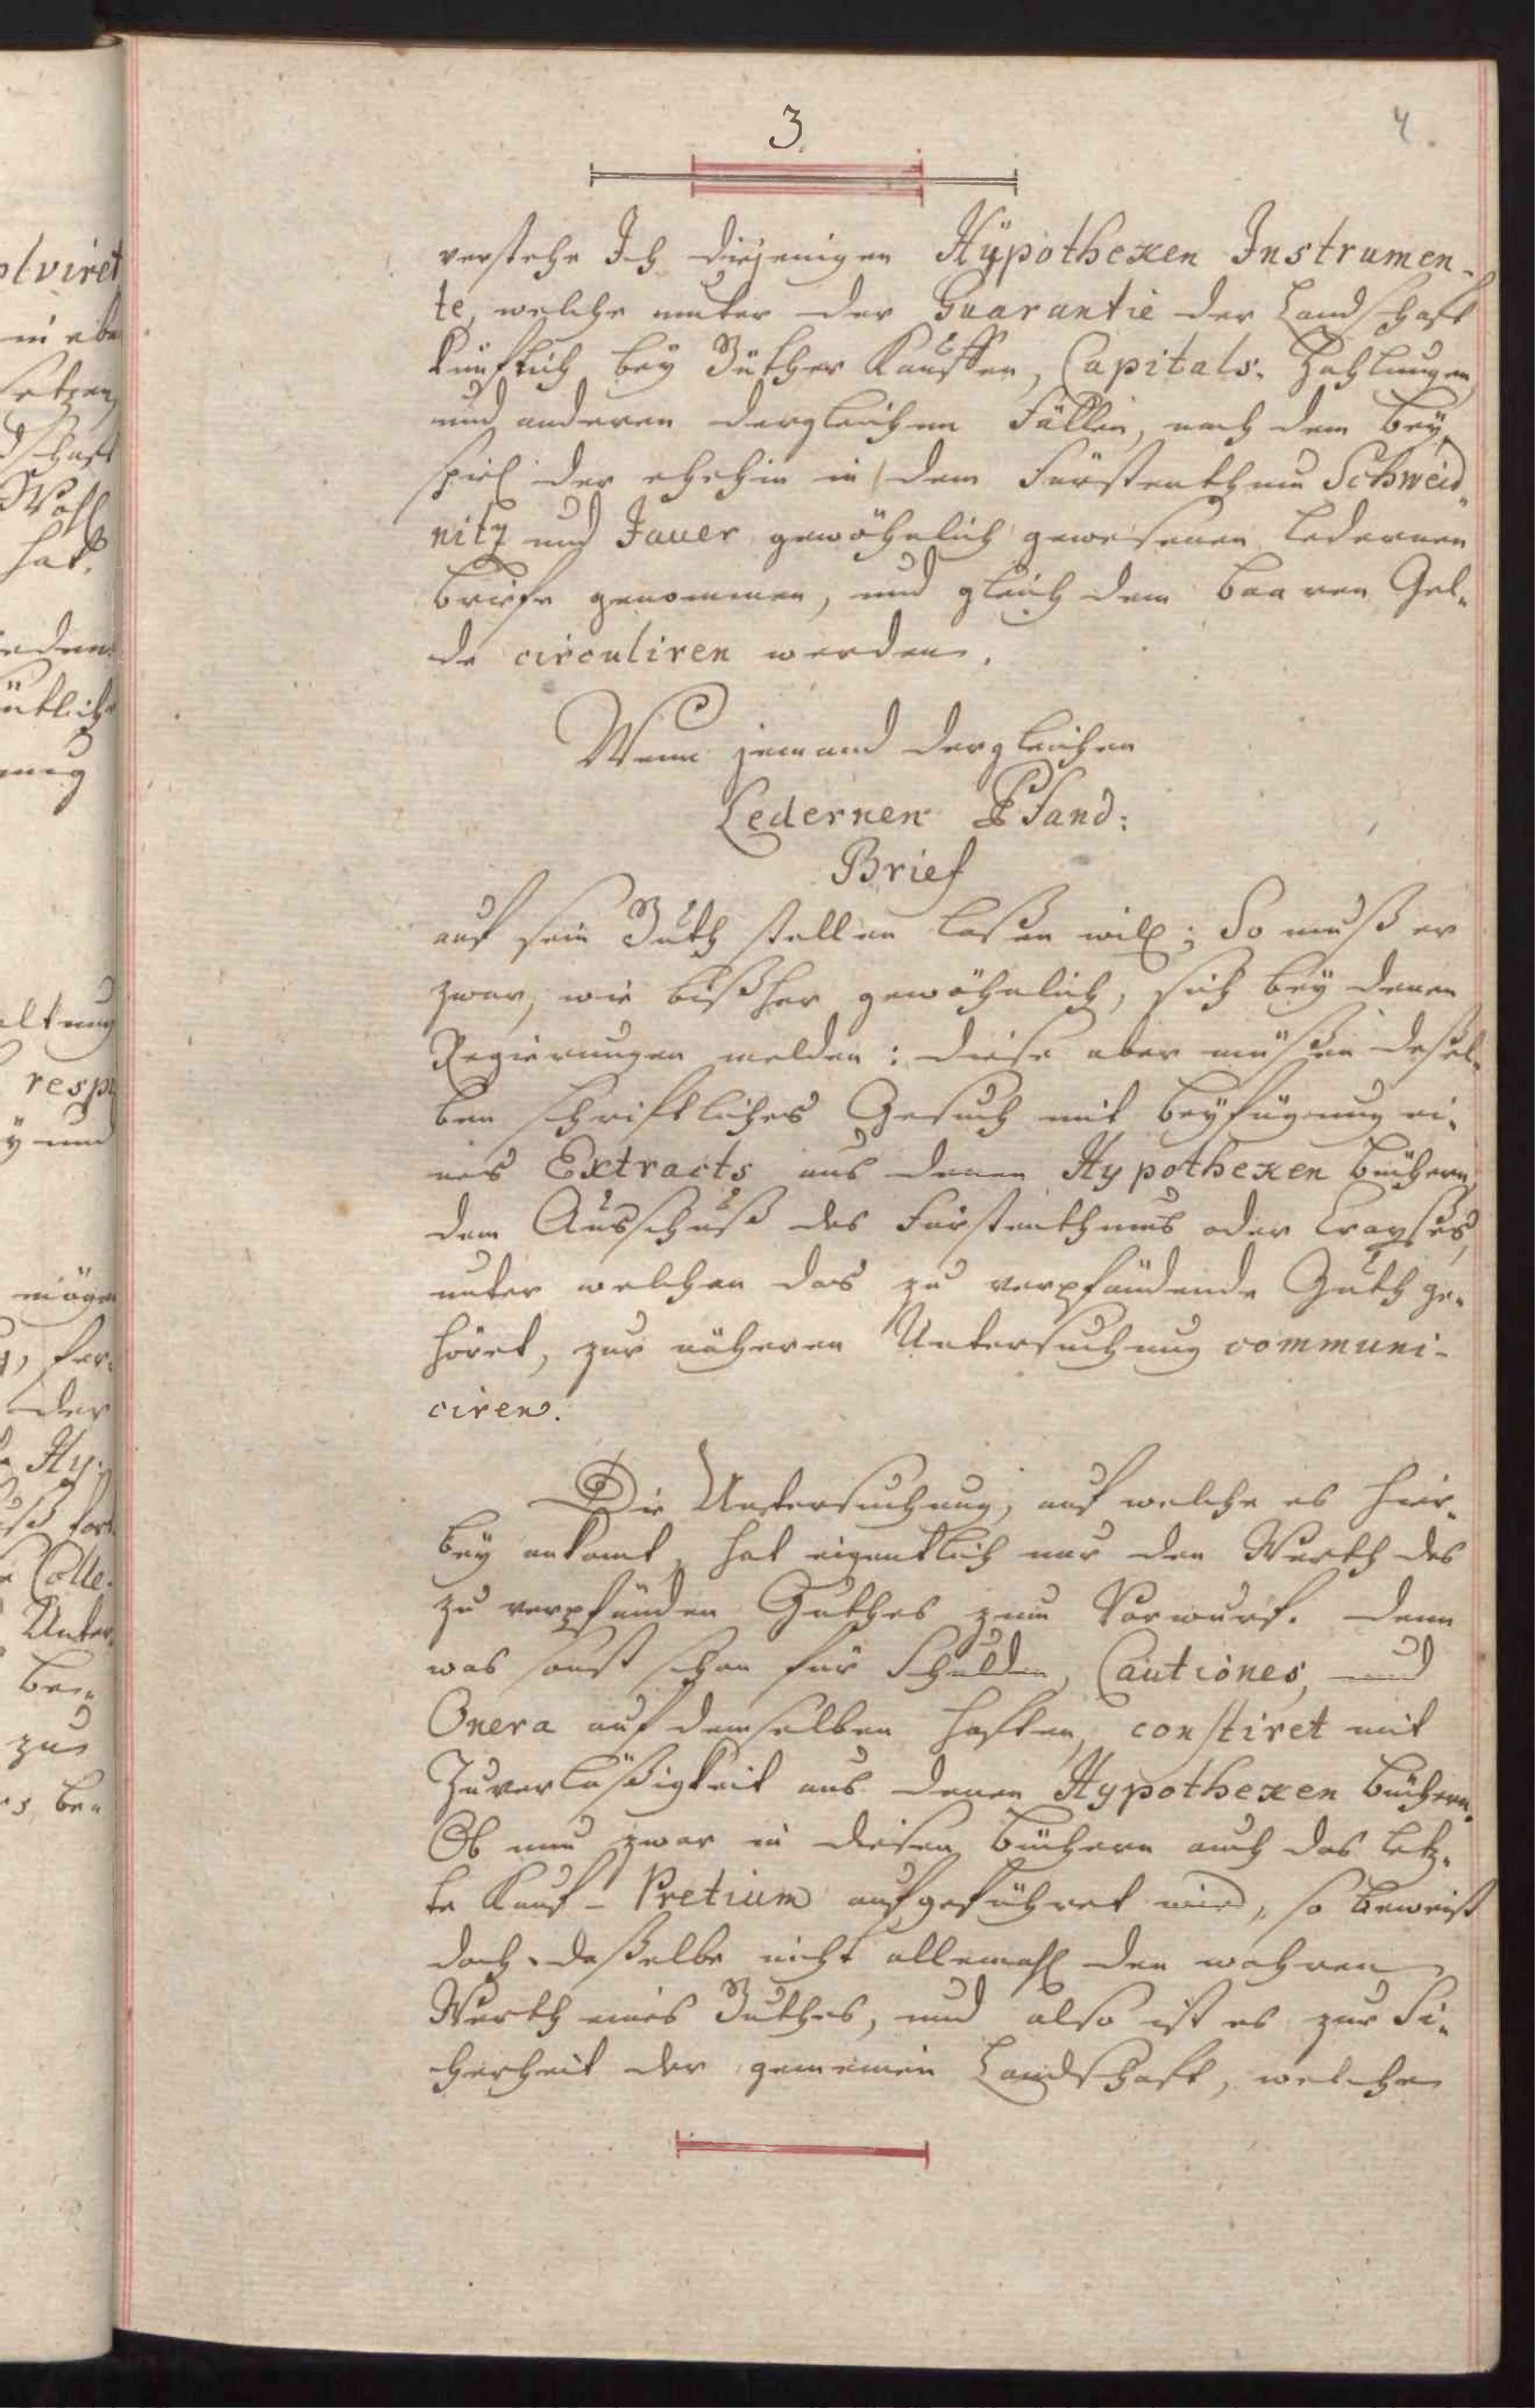 3.
4.
verstehe Ich diejenigen Hÿpothexen Instrumen-
te, welche unter der Guarantie der Landschaft
künftich bey Güther Kauffen, Capitals-Zahlungen,
und anderen dergleichen Fällen, nach dem Bey-
spiel der ehehin in dem Fürstenthum Schweid-
nitz und Jauer gewöhnlich gewesenen ledernen
Briefe genommen, und gleich dem baaren Gel-
de circuliren werden.
Wenn jemand dergleichen
Ledernen Pfand-
Brief
auf sein Guth stellen laßen will; So muß er
zwar, wie bißher gewöhnlich, sich bey denen
Regierungen melden: diese aber müßen deßel-
ben schriftliches Gesuch mit Beyfügung ei-
nes Extracts aus denen Hypothexen Büchern,
dem Ausschuß des Fürstenthums oder Crayßes,
unter welchen das zu verpfändende Guth ge-
höret, zur näheren Untersuchung communi-
ciren.
Die Untersuchung, auf welche es hier-
bey ankomt, hat eigentlich nur den Werth des
zu verpfänden Guthes zum Vorwurf. Denn
was sonst schon für Schulden, Cautiones, und
Onera auf demselben haften, constiret mit
Zuverläßigkeit aus denen Hypothexen Büchern.
Ob nun zwar in diesen Büchern auch das letz-
te Kauf-Pretium aufgeführet wird, so beweist
doch daßelbe nicht allemahl den wahren
Werth eines Guthes, und also ist es zur Si-
cherheit der gemeinen Landschaft, welche